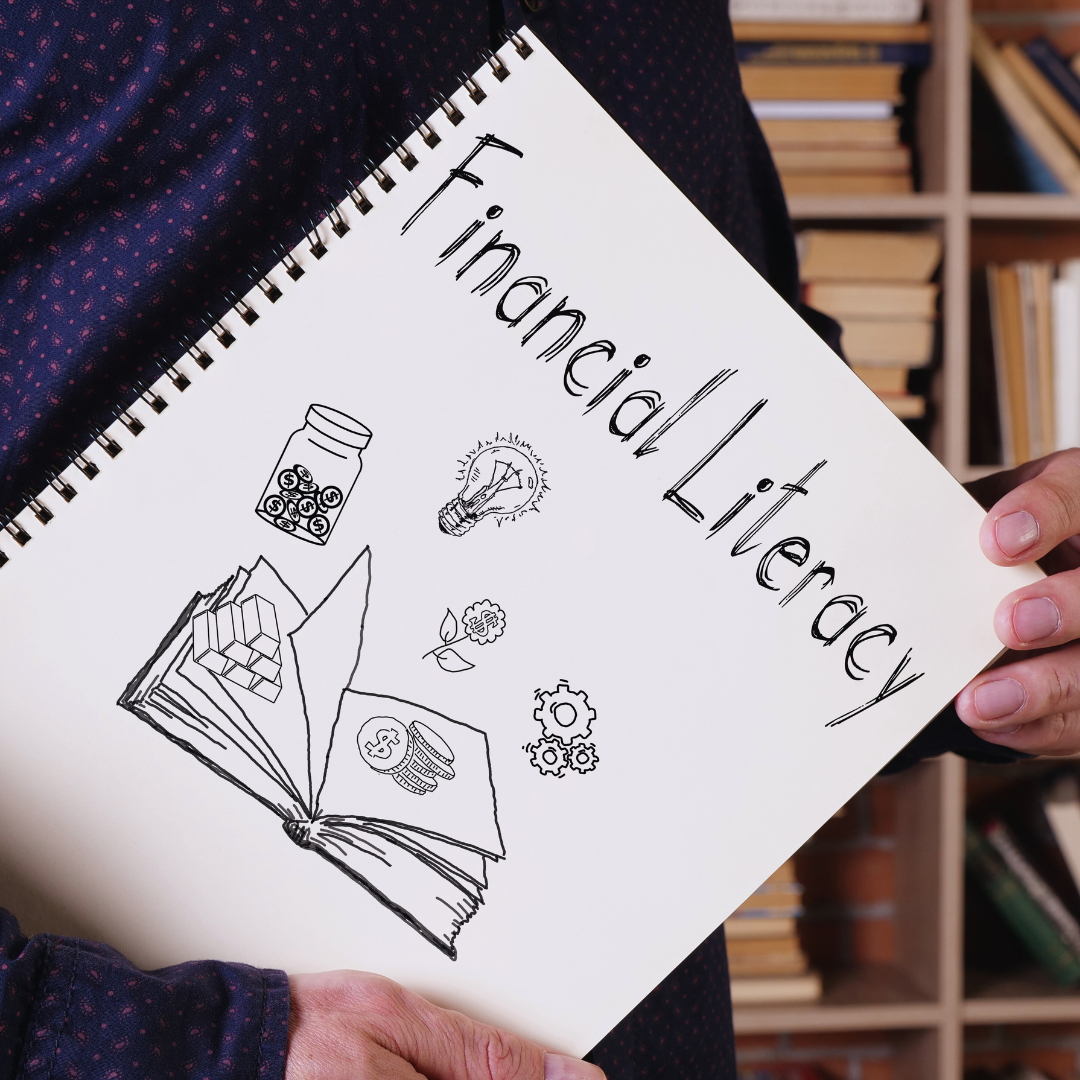 Financial Literacy